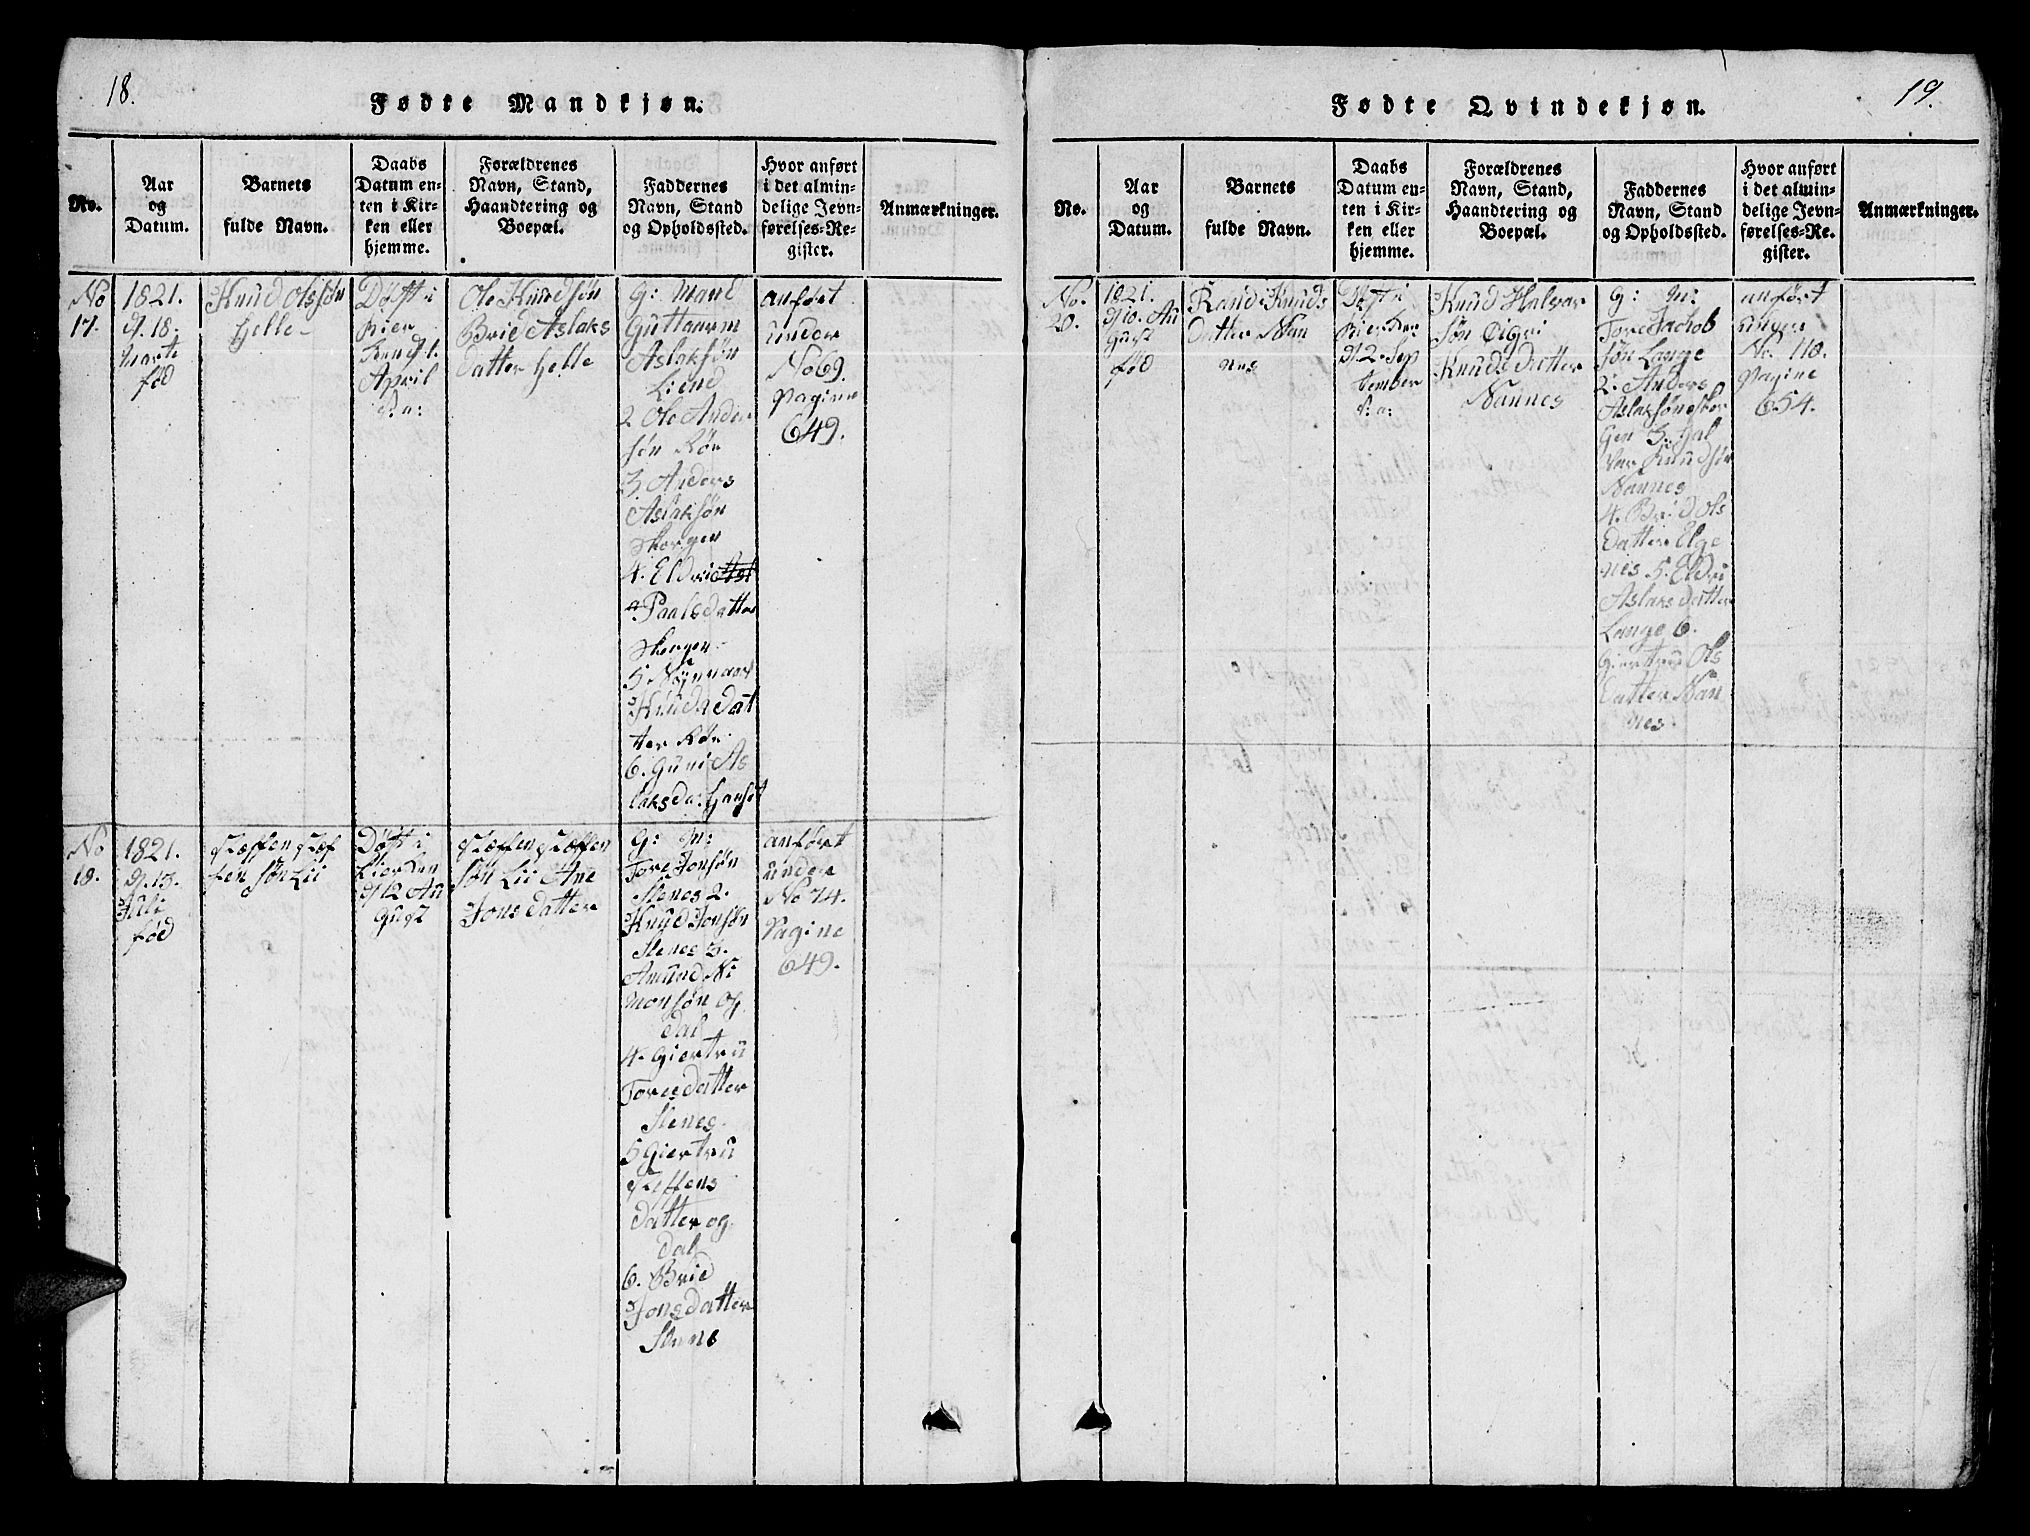 18.
Fødte Mandkjøn.
No.
Aar
og
Datum.
Barnets
fulde Navn.
Daabs
Datum en-
ten i Kir-
ken eller
hjemme.
Forældrenes
Navn, Stand,
Haandtering og
Boepæl.
Faddernes
Navn, Stand
og Opholdssted.
Hvor anført
i det almin-
delige Jevn-
førelses-Re-
gister.
Anmærkninger.
No
17.
1821.
d. 18.
Marte
fød
Knud Olssøn
Helle
Døbt i
April
Ole Knudsøn
Brid Aslaks
datter Helle
G: Mand
Guttaarm
Aslaksøn
Liend
2 Ole Ander
søn Røn
3 Anders
Aslaksøn
Skorgen
4. Eldri
Paalsdatter
Skorgen
Knudsdat
ter Røn.
6. Guni As
laksda:
anført
under
No 69.
Pagina
649.
No
18.
1821.
d. 13.
Juli
fød
Steffen Stef
fensøn Lii
Døbt i
Kierken
d 12 Au
gust
Steffen Steffen
søn Lii Ane
Jonsdatter
G: M:
Tore Jonsøn
Stenes 2.
Knud Jonsøn
Stenes 3.
Amund
monsøn Og
dal
4. Giertru
Toresdatter
Stenes.
5 Giertru
Steffens
datter og
dal
6. Brid
Jonsdatter
Stene
anført
under
No 74.
Pagine
649.
19.
Fødte Qvindekjøn.
No.
Aar
og
Datum.
Barnets
fulde Navn.
Daabs
Datum en-
ten i Kir-
ken eller
hjemme.
Forældrenes
Navn, Stand,
Haandtering og
Boepæl.
Faddernes
Navn, Stand
og Opholdssted.
Hvor anført
i det almin-
delige Jevn-
førelses-Re-
gister.
Anmærkninger.
No.
20.
1821.
d 10. Au
gust
fød
Randi Knuds
datter Nan
nes
Døbt i
Kierken
d 2. Sep
tember
s: a:
Knud Halvar
søn
Knudsdatter
Nannes
G: M:
Tore Jachob
søn Lange
2. Anders
Aslaksøn Skor
gen 3. Hal
var Knudsøn
Nannes
4. Brid Ols
datter Elge
nes 5. Eldri
Aslaksdatter
Lange 6.
Giertru Ols
datter Nan
nes.
anført
No. 110.
Pagine
654.